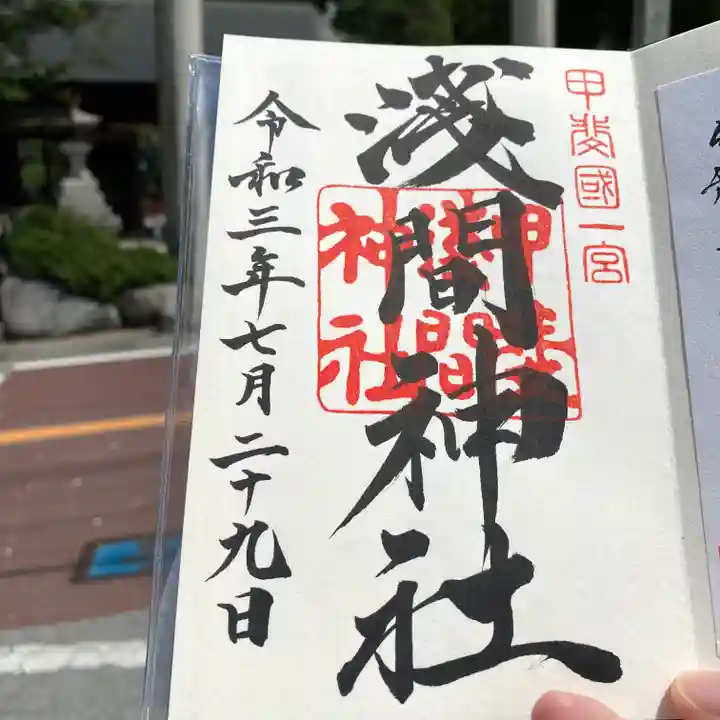 甲斐國一宮
淺間神社
令和三年七月二十九日